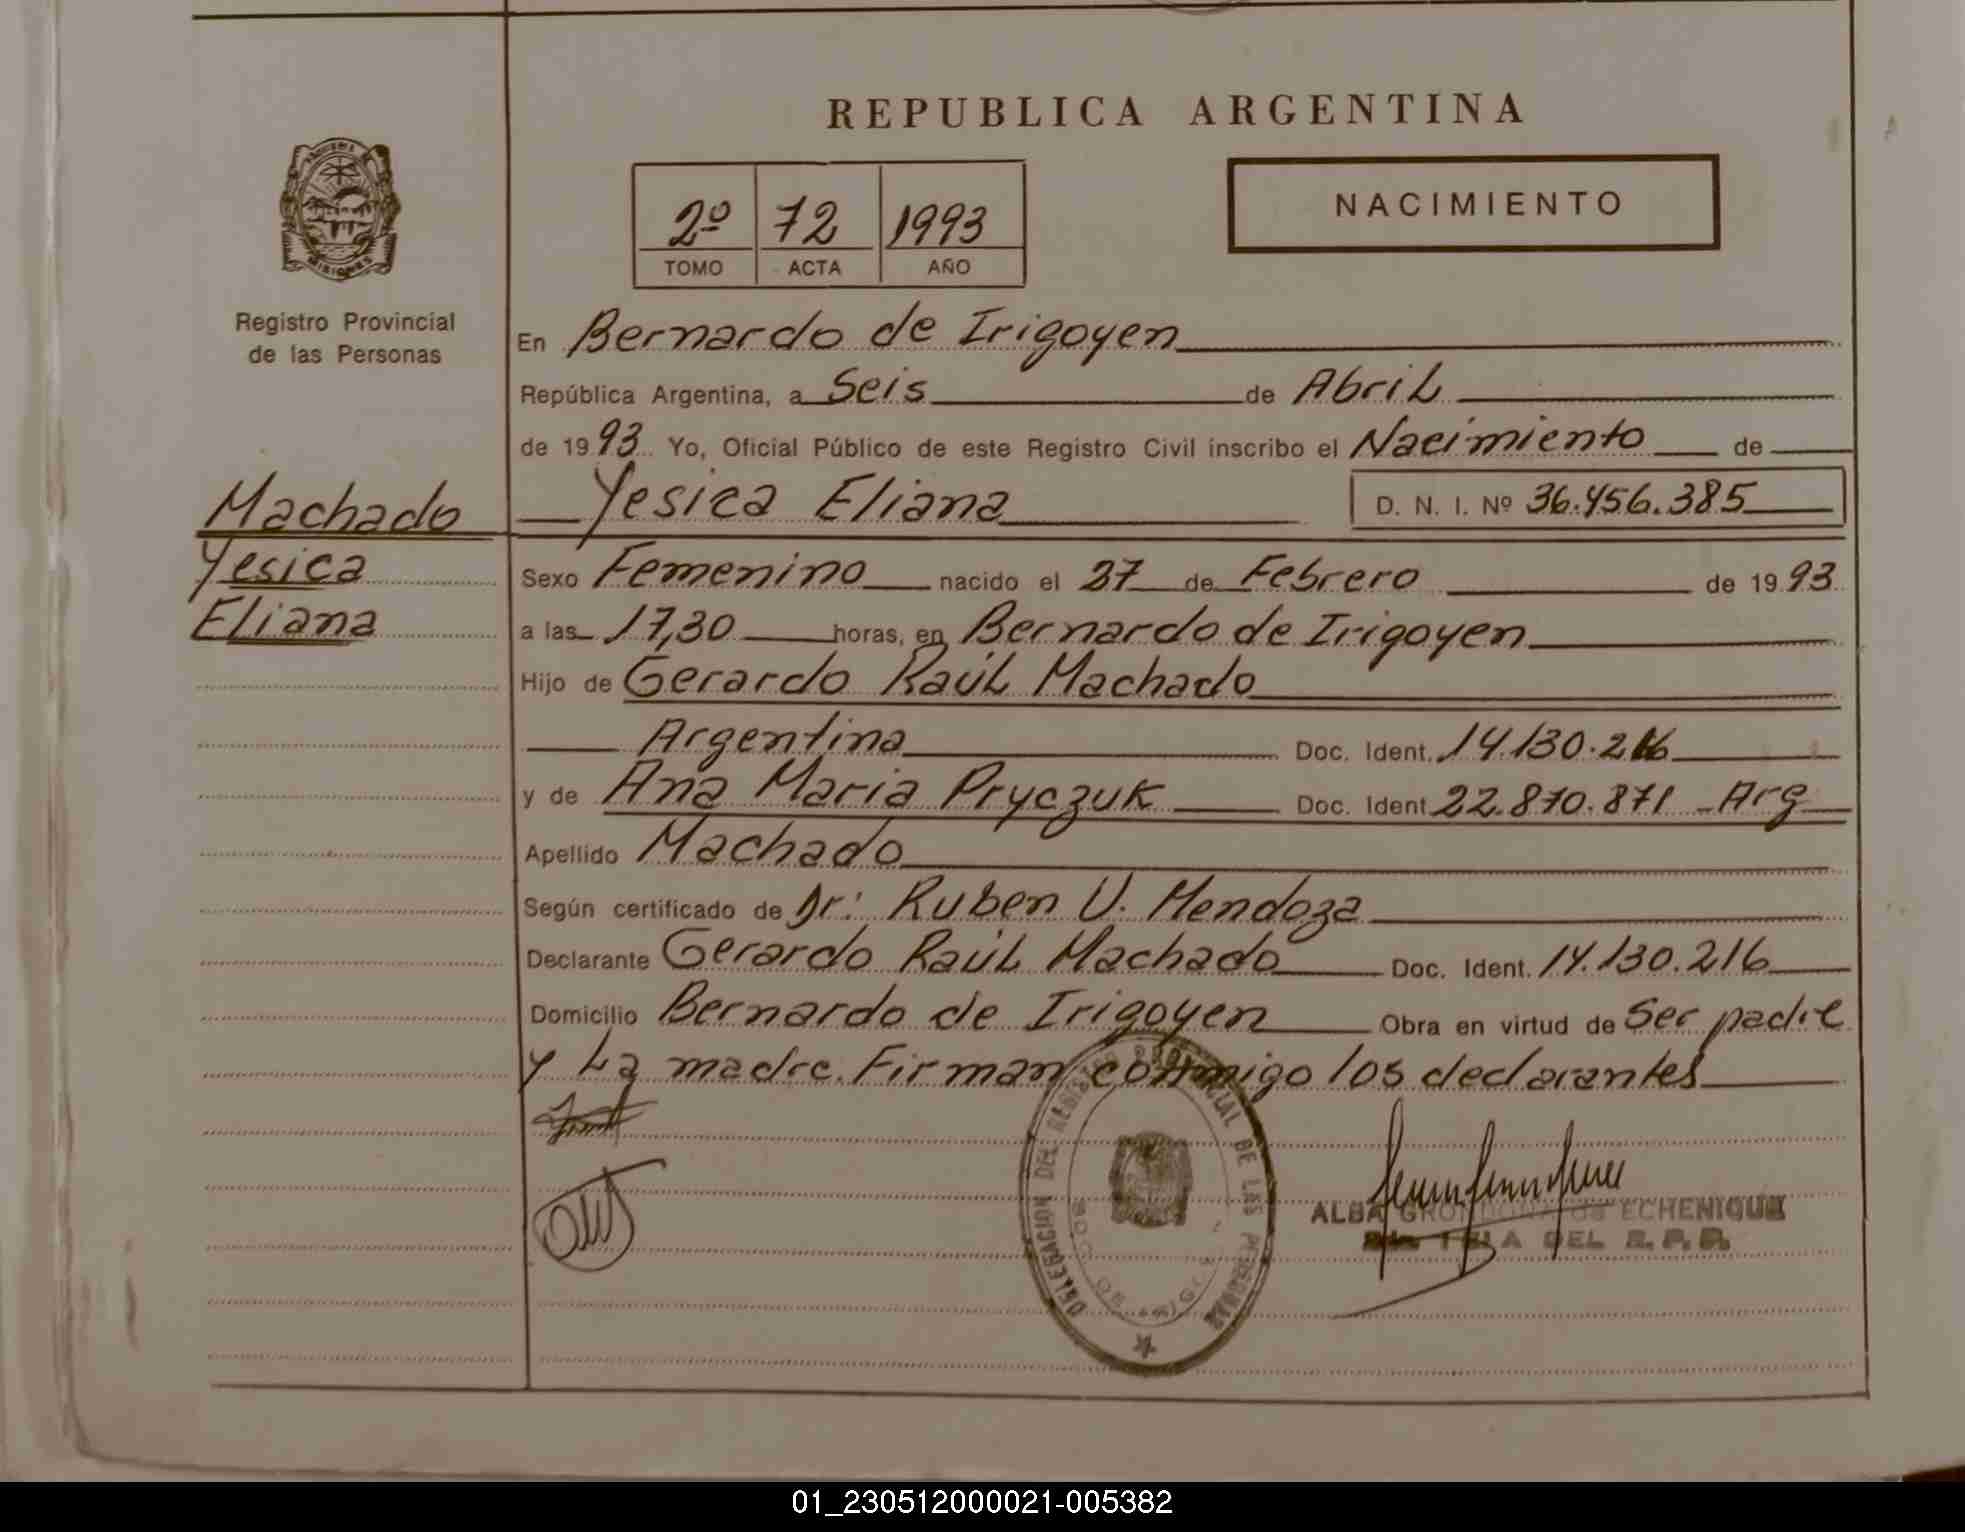 REPUBLICA ARGENTINA
MISIONES
Registro Provincial
de las Personas
2º 72 1993
TOMO ACTA AÑO
NACIMIENTO
En Bernardo de Irigoyen
República Argentina, a Seis de Abril
de 1993 Yo, Oficial Público de este Registro Civil inscribo el Nacimiento de
Machado
Yesica
Eliana
Yesica Eliana D. N. I. Nº 36.456.385
Sexo Femenino nacido el 27 de Febrero de 1993
a las 17,30 horas, en Bernardo de Irigoyen
Hijo de Gerardo Raúl Machado
Argentina Doc. Ident. 14.130.216
y de Ana Maria Pryczuk Doc. Ident 22.870.871 - Arg
Apellido Machado
Según certificado de Dr: Ruben U. Mendoza
Declarante Gerardo Raúl Machado Doc. Ident. 14.130.216
Domicilio Bernardo de Irigoyen Obra en virtud de Ser padre
y La madre. Firman conmigo los declarantes
DELEGACION DEL REGISTRO PROVINCIAL DE LAS PERSONAS
ALBA GRONDONA de ECHENIQUE
DEL R. P. P.
01_230512000021-005382